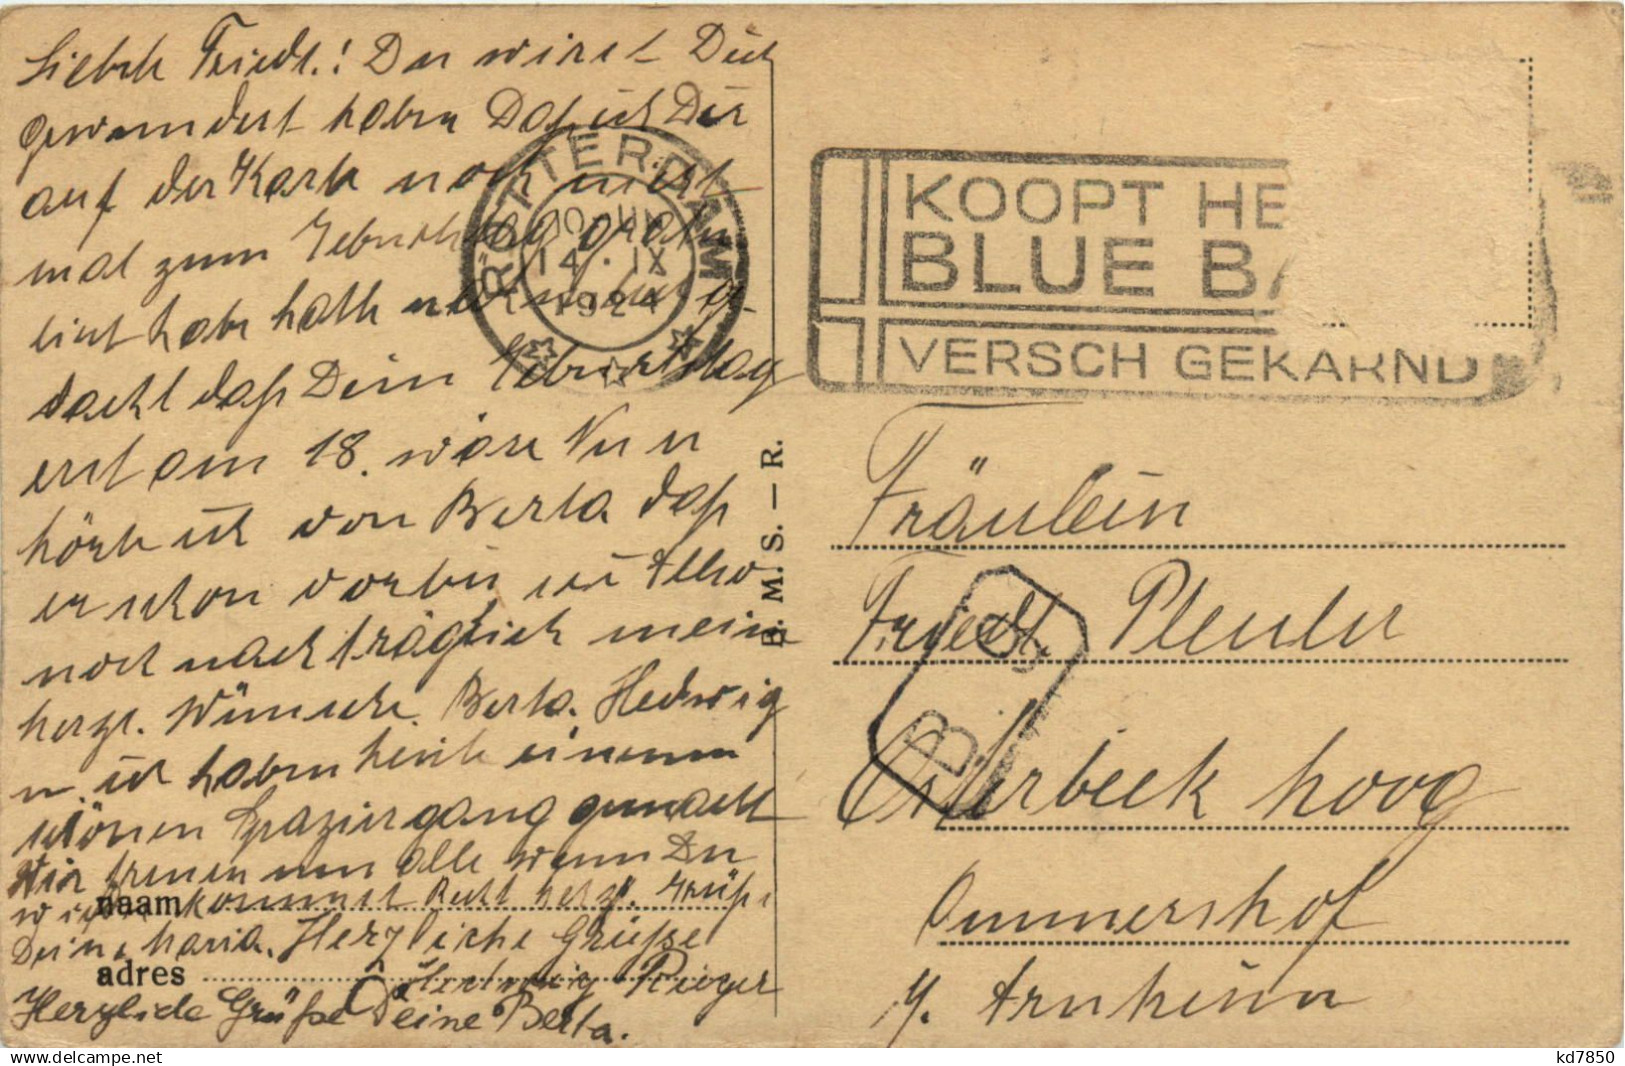 Liebste Friedl.! Du wirst Dich
gewundert haben Daß ich Dir
auf der Karte noch nicht
mal zum Geburtstag gratu
liert habe hatte noch ge
dacht daß Dein Geburtstag
erst am 18. wäre Nun
hörte ich von Berta daß
er schon vorbei ist Also
noch nachträglich meine
herzl. Wünsche. Berta. Hedwig
u. ich haben heute einen
schönen Spaziergang gemacht
Wir freuen uns alle wenn Du
wieder kommst Recht herzl. Grüße
Deine Maria. Herzliche Grüße
Hedwig Rieger
Herzliche Grüße Deine Berta.
naam
adres
B. M. S. – R.
ROTTERDAM
14 · IX
1924
KOOPT HE
BLUE BA
VERSCH GEKARND
B
Fräulein
Friedl. Pleuler
Osterbeek hoog
Ommershof
b/. Arnheim
kd7850
www.delcampe.net